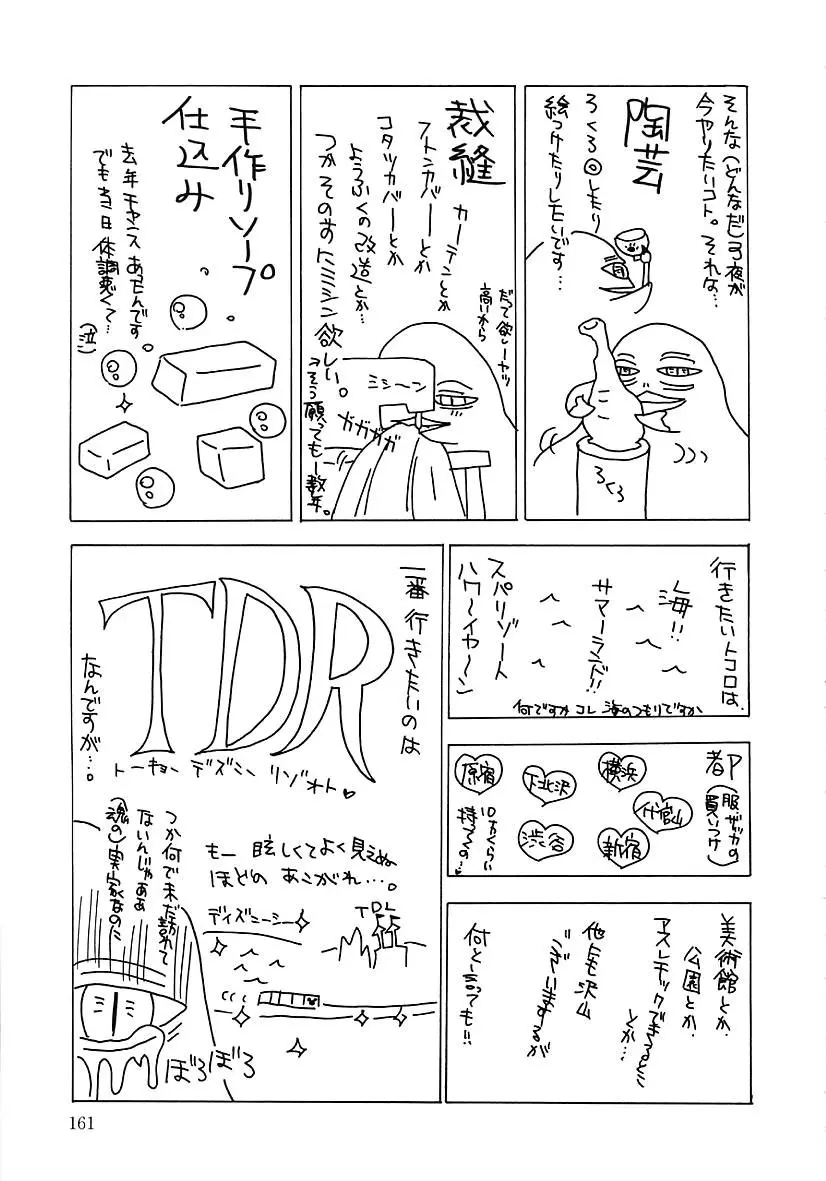 そんな(どんなだ)弓夜が
今ヤりたいコト。それな…
陶芸
ろくろ◎したり
絵つけたりしたいです…
ろくろ
裁縫
カーテンとか
フトンカバーとか
コタツカバーとか
ようふくの改造とか…
つかそのまえにミシン欲しい。
だって欲しーヤツ
高いから
ミシーン
ガガガガ
→そう願っても一数年。
手作りソープ
仕込み
去年チャンスあったんです
でも当日体調悪くて…
(泣)
行きたいトコロは、
海!!
サマーランド!!
スパリゾート
ハワ〜イヤ〜ン
何ですかコレ 海のつもりですか
都
(服、ザッカの
買いつけ)
横浜
代官山
新宿
下北沢
渋谷
原宿
10万くらい
持ってくの…♥
美術館とか、
公園とか、
アスレチックできるとこ
とか…
他にも沢山
ございますが
何と言っても!!
一番行きたいのは
TDR
トーキョー ディズニー リゾォト♥
なんですが…。
もー 眩しくてよく見えぬ
ほどの あこがれ…。
ディズニーシー
TDL
つか何で未だ訪れて
ないんじゃああ
(魂の)実家なのに
ぼろぼろ
161